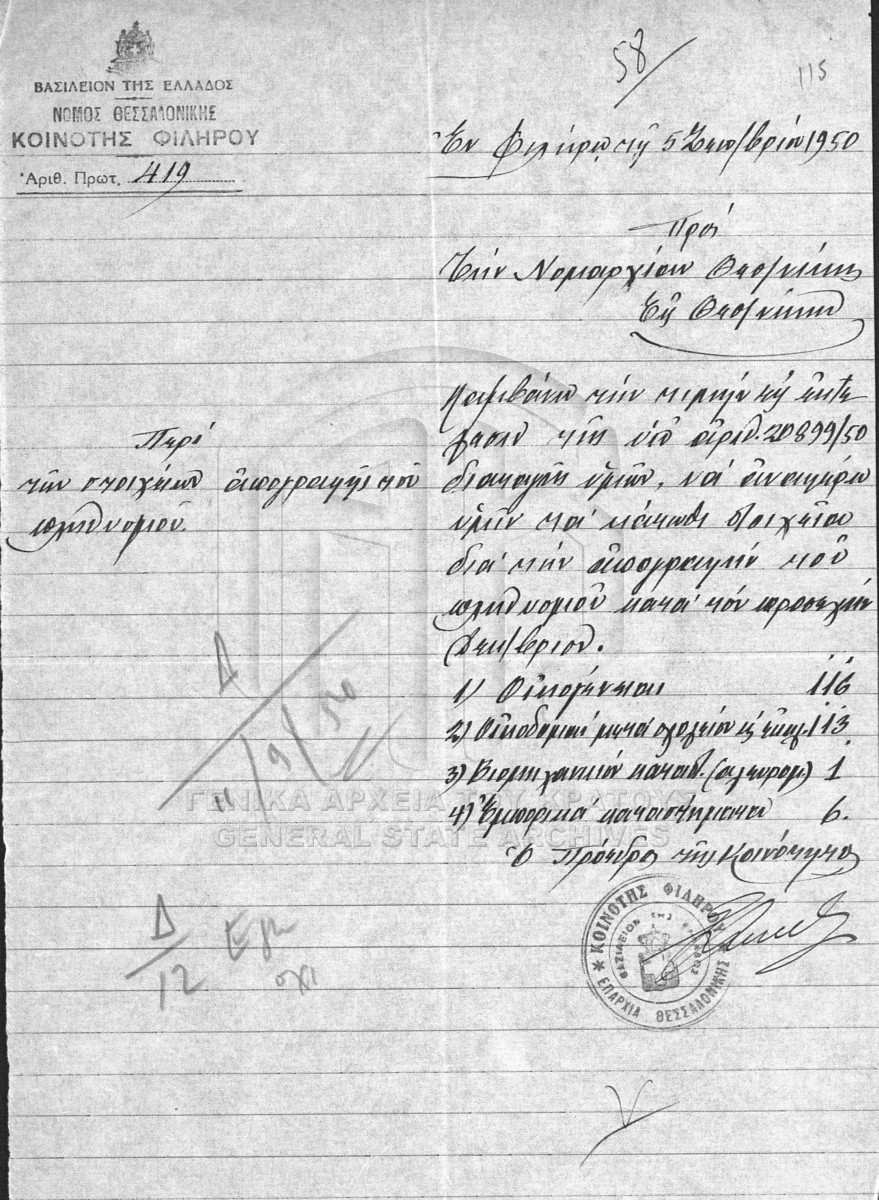 58/
115
ΒΑΣΙΛΕΙΟΝ ΤΗΣ ΕΛΛΑΔΟΣ
ΝΟΜΟΣ ΘΕΣΣΑΛΟΝΙΚΗΣ
ΚΟΙΝΟΤΗΣ ΦΙΛΗΡΟΥ
Ἀριθ. Πρωτ. 419
Ἐν Φιλήρῳ τῇ 5 Σεπ/βρίου 1950
Πρός
Τήν Νομαρχίαν Θεσ/νίκης
Εἰς Θεσ/νίκην
Περί
τῶν στοιχείων ἀπογραφῆς τοῦ
πληθυσμοῦ.
Λαμβάνω τήν τιμήν εἰς ἐκτέ
λεσιν τῆς ὑπ' ἀριθ. 20899/50
διαταγῆς ὑμῶν, νά ἀναφέρω
ὑμῖν τά κάτωθι στοιχεῖα
διά τήν ἀπογραφήν τοῦ
πληθυσμοῦ κατά τόν προσεχῆ
Δεκ/βριον.
1) Οἰκογένειαι 116
2) Οἰκοδομαί μετά σχολείου κ ἐκκλ. 113
3) Βιομηχανικόν κατάστ. (ἀλευρομ.) 1
4) Ἐμπορικά καταστήματα 6.
Ὁ Πρόεδρος τῆς Κοινότητος
Δ
11/9/50
Δ/12
ΓΕΝΙΚΑ ΑΡΧΕΙΑ ΤΟΥ ΚΡΑΤΟΥΣ
GENERAL STATE ARCHIVES
ΚΟΙΝΟΤΗΣ ΦΙΛΗΡΟΥ
ΕΠΑΡΧΙΑ ΘΕΣΣΑΛΟΝΙΚΗΣ
ΒΑΣΙΛΕΙΟΝ ΤΗΣ ΕΛΛΑΔΟΣ